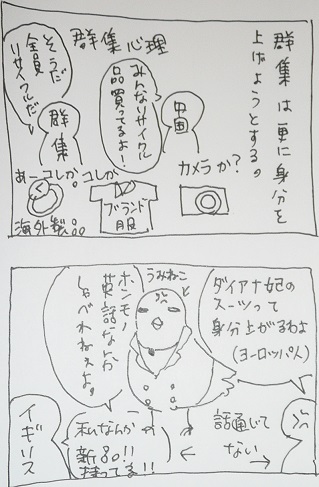 群集は更に身分を
上げようとする。
群集心理
中国
みんなリサイクル
品買ってるよ！
そうだ
全員
リサイクルだ〜
群集
カメラか？
あーコレか。コレか
ブランド
服
海外製品。
ダイアナ妃の
スーツって
身分上がるわよ
（ヨーロッパ人）
うみねこ
ホンモノ
英語なんか
しゃべれねぇよ。
話通じて
ない→
←
私なんか
新品!!
持ってる!!
イギリス